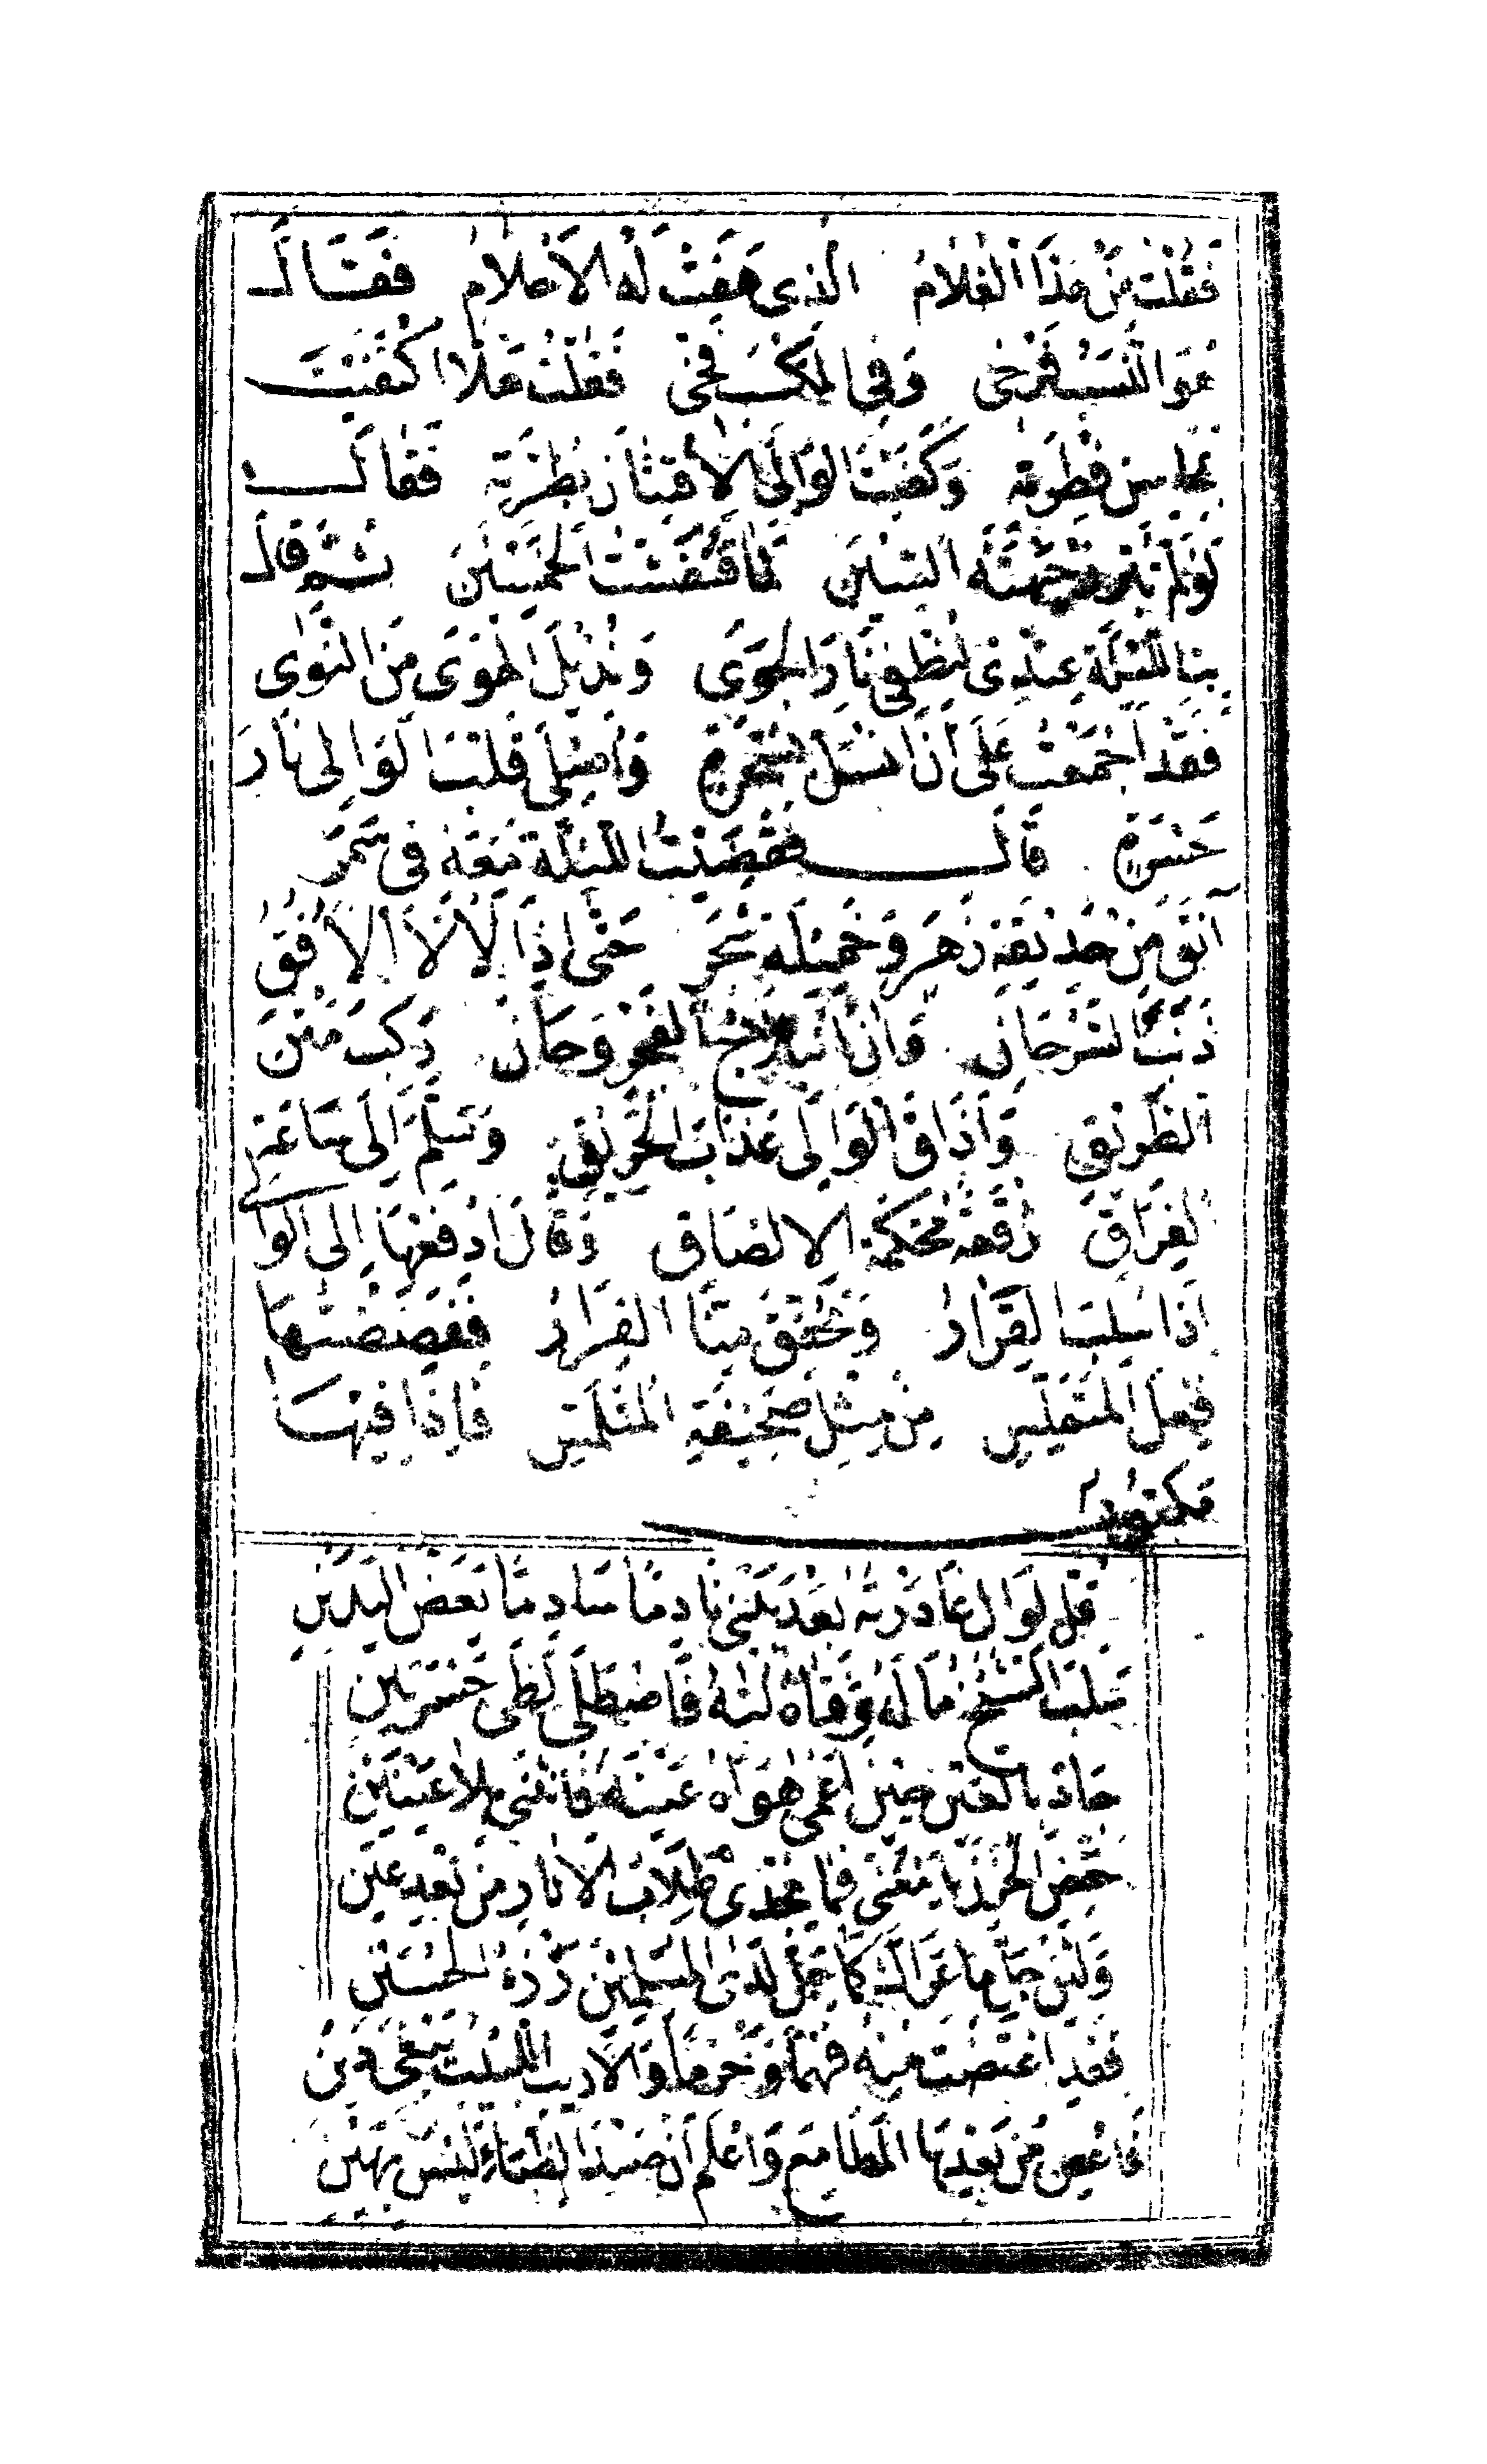 فَقُلْتُ مَنْ هَذَا الْغُلَامُ الذى هَفَتْ لَهُ الْأَحْلَامُ فَقَالَ
هُوَ النَّسَبِ فَرْخِى وَفِى الْمَكْسَبِ فَخِّى فَقُلْتُ هَلَّا اكْتَفَيْتَ
بمحاسن فِطْرَتِهِ وَكَفَيْتَ الْوَالِىَ الْاِفْتِتَانَ بِطُرَّتِهِ فَقَالَ
لَوْ لَمْ تُبْرِزْ جَبْهَتُهُ السِّينَ لَمَا قَنْفَشْتُ الْخَمْسِينَ ثُمَّ قَالَ
بِتِ اللَّيْلَةَ عِنْدِى لِنُطْفِىَ نَارَ الْجَوَى وَنُدِيلَ الْهَوَى مِنَ النَّوَى
فَقَدْ أَجْمَعْتُ عَلَى أَنْ أَنْسَلَّ بِسُحْرَةٍ وَأُصْلِىَ قَلْبَ الْوَالِى نَارَ
حَسْرَةٍ قَالَ فَقَضَيْتُ اللَّيْلَةَ مَعَهُ فِى سَمَرٍ
آنَقَ مِنْ حَدِيقَةِ زَهَرٍ وَخَمِيلَةِ شَجَرٍ حَتَّى إِذَا لَأْلَأَ الْأُفُقَ
ذَنَبُ السِّرْحَانِ وَآنَ انْبِلَاجُ الْفَجْرِ وَحَانَ رَكِبَ مَتْنَ
الطَّرِيقِ وَأَذَاقَ الْوَالِىَ عَذَابَ الْحَرِيقِ وَسَلَّمَ إِلَىَّ سَاعَةَ
الْفِرَاقِ رُقْعَةً مُحْكَمَةَ الْاِلْصَاقِ وَقَالَ ادْفَعْهَا إِلَى الْوَالِى
إِذَا سُلِبَ الْقَرَارَ وَتَحَقَّقَ مِنَّا الْفِرَارَ فَفَضَضْتُهَا
فِعْلَ الْمُتَمَلِّسِ مِنْ مِثْلِ صَحِيفَةِ الْمُتَلَمِّسِ فَإِذَا فِيهَا
مَكْتُوبٌ
قُلْ لِوَالٍ غَادَرْتُهُ بَعْدَ بَيْنِى نَادِمًا سَادِمًا يَعَضُّ الْيَدَيْنِ
سَلَبَ الشَّيْخُ مَالَهُ وَفَتَاهُ لُبَّهُ فَاصْطَلَى لَظَى حَسْرَتَيْنِ
جَادَ بِالْعَيْنِ حِينَ أَعْمَى هَوَاهُ عَيْنَهُ فَانْثَنَى بِلَا عَيْنَيْنِ
خَفِّضِ الْحُزْنَ يَا مُعَنَّى فَمَا يُجْدِى طِلَابُ الْآثَارِ مِنْ بَعْدِ عَيْنِ
وَلَئِنْ جَلَّ مَا عَرَاكَ كَمَا جَلَّ لَدَى الْمُسْلِمِينَ رُزْءُ الْحُسَيْنِ
فَقَدِ اعْتَضْتَ مِنْهُ فَهْمًا وَحَزْمًا وَالْأَدِيبُ اللَّبِيبُ يَبْغِى ذَيْنِ
فَاعْصِ مِنْ بَعْدِهَا الْمَطَامِعَ وَاعْلَمْ أَنَّ صَيْدَ الظِّبَاءِ لَيْسَ بِهَيْنِ